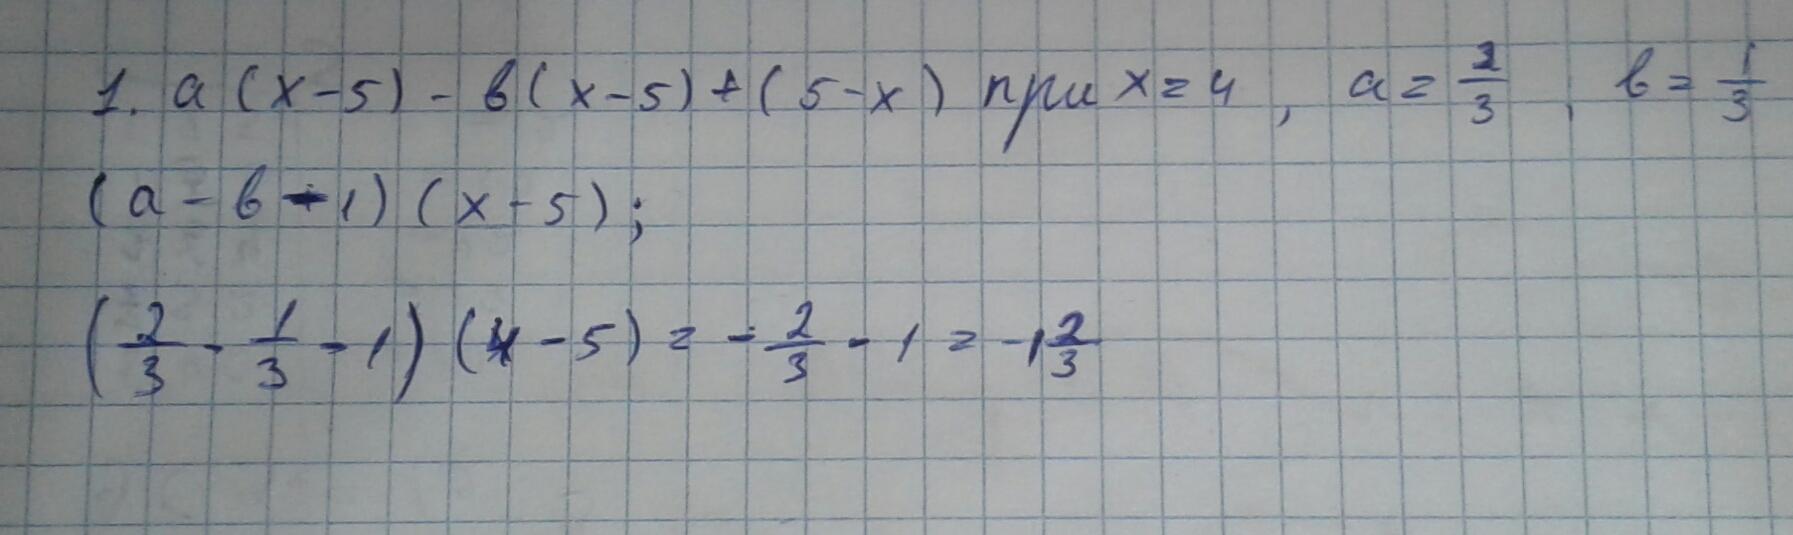 1. a (x-5) - в(x-5) + (5-x) при x=4, a = 2/3, в = 1/3
(a - в - 1) (x - 5);
(2/3 - 1/3 - 1) (4 - 5) = - 2/3 - 1 = -1 2/3